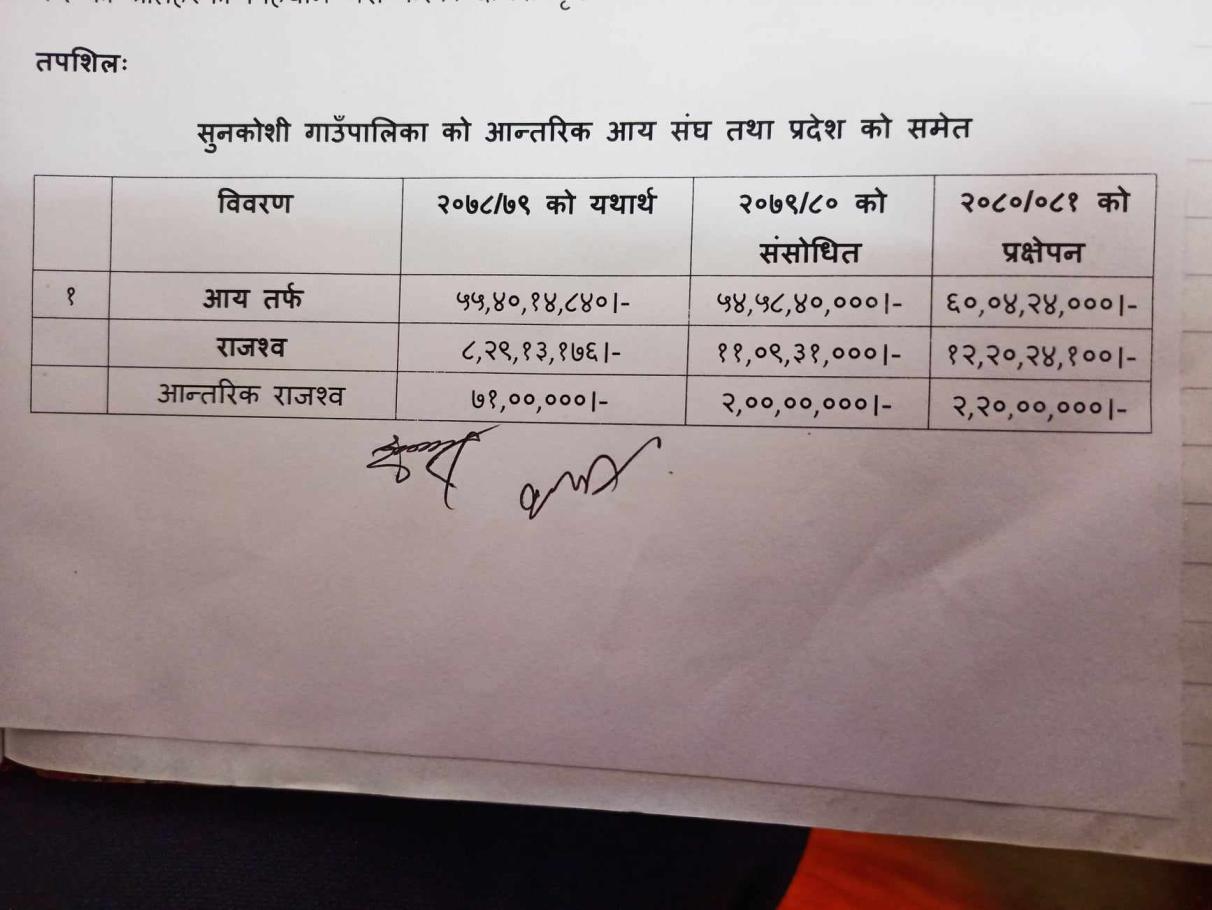 तपशिलः
सुनकोशी गाउँपालिका को आन्तरिक आय संघ तथा प्रदेश को समेत
विवरण २०७८/७९ को यथार्थ २०७९/८० को संसोधित २०८०/०८१ को प्रक्षेपन
१ आय तर्फ ५५,४०,१४,८४०|- ५४,५८,४०,०००|- ६०,०४,२४,०००|-
राजश्व ८,२९,१३,१७६|- ११,०९,३१,०००|- १२,२०,२४,१००|-
आन्तरिक राजश्व ७१,००,०००|- २,००,००,०००|- २,२०,००,०००|-